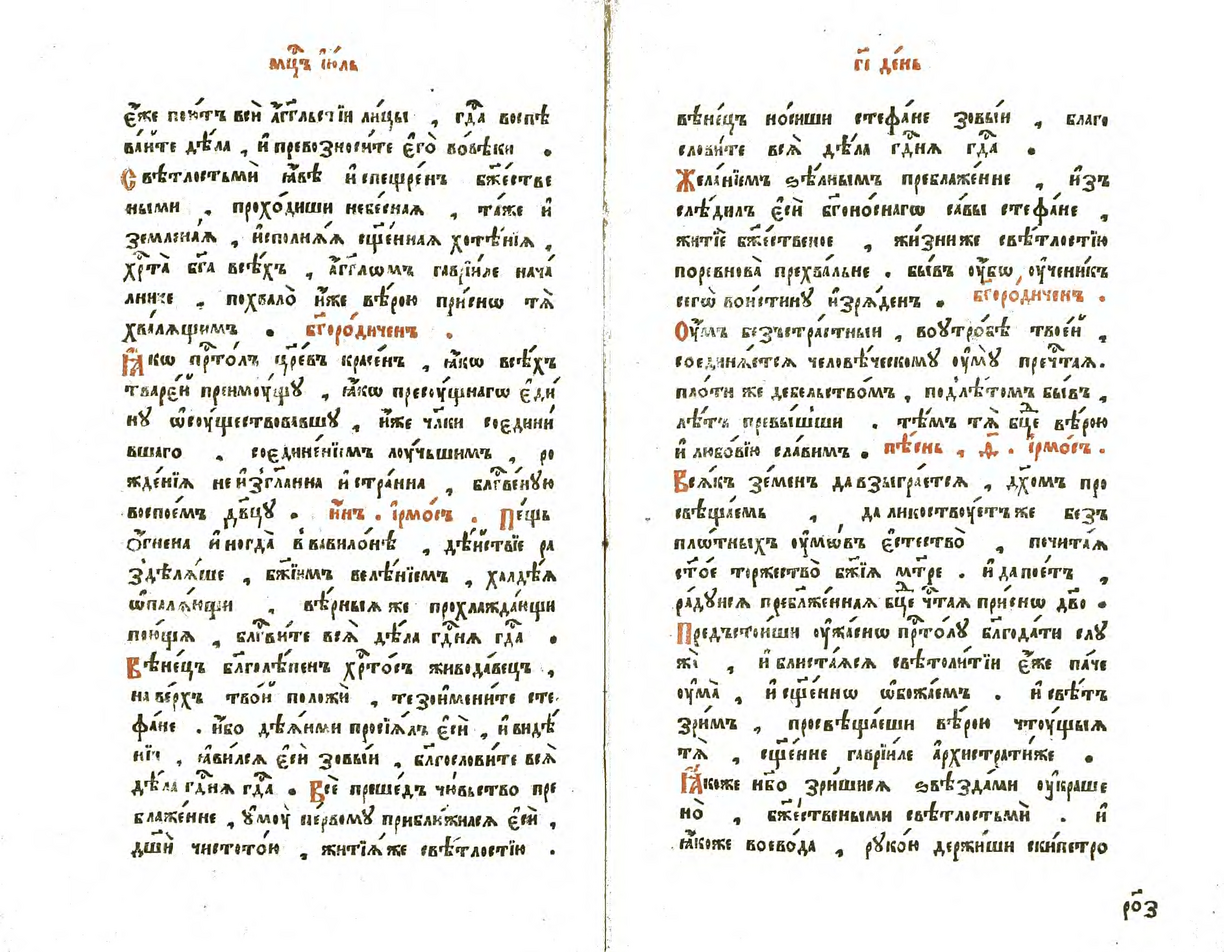 мц҃ъ і҆ю́ль
є҆́же пою́тъ всѝ а҆́гг҃льстїи ли́цы , гд҇а воспѣ
ва́йте дѣ́ла , и҆ превозноси́те є҆го̀ во вѣ́ки .
Свѣ́тлостьмѝ ꙗ҆́вѣ и҆спещре́нъ бж҃е́стве
ными , прохо́диши небе́сная , та́же и҆
земьна́ѧ , и҆сполнѧ́ѧ сщ҃е́нная хотѣ́нїѧ ,
хрⷭ҇та̀ бг҃а всѣ́хъ , а҆́гг҃лѡмъ гаврїи́ле нача́
лниче . похвало̀ и҆̀же вѣ́рою при́снѡ тѧ̀
хва́лѧщимъ . бг҃оро́диченъ .
Ꙗ҆́кѡ прⷭ҇то́лъ цр҃е́въ кра́сенъ , ꙗ҆́кѡ всѣ́хъ
тваре́й преимоу́щу , ꙗ҆́кѡ пресоу́щнагѡ є҆ди́
ну ѡ҆соу́ществовавшу , и҆́же чл҃ки соєдини́
вшаго . соєдине́нїемъ лоу́чьшимъ , ро
жде́нїѧ неи҆зг҃ла́нна и҆ стра́нна , блг҃ве́ную
воспое́мъ дв҃цу . и҆́нъ . і҆рмо́съ . Пе́щь
ѻ҆́гнена и҆ногда̀ в̾ вавило́нѣ , дѣ́йствїе ра
здѣлѧ́ше , бж҃їимъ велѣ́нїемъ , халдѣ́ѧ
ѡ҆палѧ́ющи . вѣ́рныѧ же прохлажда́ющи
пою́щїѧ , блг҃ви́те всѧ̀ дѣла̀ гдⷭ҇нѧ гдⷭ҇а .
Вѣне́цъ блг҃олѣ́пенъ хрⷭ҇то́съ живода́вецъ ,
на ве́рхъ тво́й положѝ , тезоимени́те сте
фа́не . и҆́бо дѣѧ́ньми просїѧ́лъ є҆сѝ , и҆ видѣ́
нїи , ꙗ҆ви́лсѧ є҆сѝ зовы́й , блг҃ослови́те всѧ̀
дѣла̀ гдⷭ҇нѧ гдⷭ҇а . Всѐ преше́дъ чю́вьство пре
блаже́нне , у҆моу̀ пе́рвому прибли́жилсѧ є҆сѝ ,
дш҃ѝ чистото́ю , житїѧ́ же свѣ́тлостїю .
гі҃ де́нь
вѣне́цъ но́сиши стефа́не зовы́й , благо
слови́те всѧ̀ дѣла̀ гдⷭ҇нѧ гдⷭ҇а .
Жела́нїемъ ѕѣ́лнымъ преблаже́нне , и҆зъ
слѣ́дилъ є҆сѝ бг҃оно́снагѡ са́вы стефа́не ,
житїѐ бж҃е́ственое , жи́зни же свѣ́тлостїю
поревнова̀ прехва́льне . бы́въ оу҆́бѡ оу҆чени́къ
сегѡ̀ вои́стину и҆зрѧ́денъ . бг҃оро́диченъ .
Оу҆́мъ безъстра́стныи , воутро́бѣ твое́й ,
соєдинѧ́етсѧ человѣ́ческому оу҆му̀ преч҇таѧ .
пло́ти же дебельство́мъ , подлѣ́томъ бы́въ ,
лѣ́тъ превы́шши . тѣ́мъ тѧ̀ бц҃е вѣ́рою
и҆ любо́вїю сла́вимъ . пѣ́снь , ѳ҃ . і҆рмо́съ .
Всѧ́къ зе́менъ да взыгра́етсѧ , дх҃омъ про
свѣща́емь , да ликовствоу́етъ же безъ
пло́тныхъ оу҆мѡ́въ є҆стество̀ , почита́ѧ
ст҃о́е торжество̀ бж҃їѧ мт҃ре . и҆ да пое́тъ ,
ра́дуисѧ пребл҃же́нная бц҃е ч҇таѧ при́снѡ дв҃о .
Предъстои́ши оу҆жа́снѡ прⷭ҇то́лу блг҃ода́ти слу
жѝ , и҆ блиста́ѧсѧ свѣтоли́тїи є҆́же па́че
оу҆ма̀ , и҆ сщ҃е́ннѡ ѡ҆божа́емъ . и҆ свѣ́тъ
зри́мъ , просвѣща́еши вѣ́рою чтоу́щыѧ
тѧ̀ , сщ҃е́нне гаврїи́ле а҆рхистрати́же .
Ꙗ҆́коже нб҃о зри́шисѧ ѕвѣзда́ми оу҆кра́ше
но̀ , бж҃е́ствеными свѣ́тлостьмѝ . и҆
ꙗ҆́коже воево́да , руко́ю держи́ши ски́петро
роз